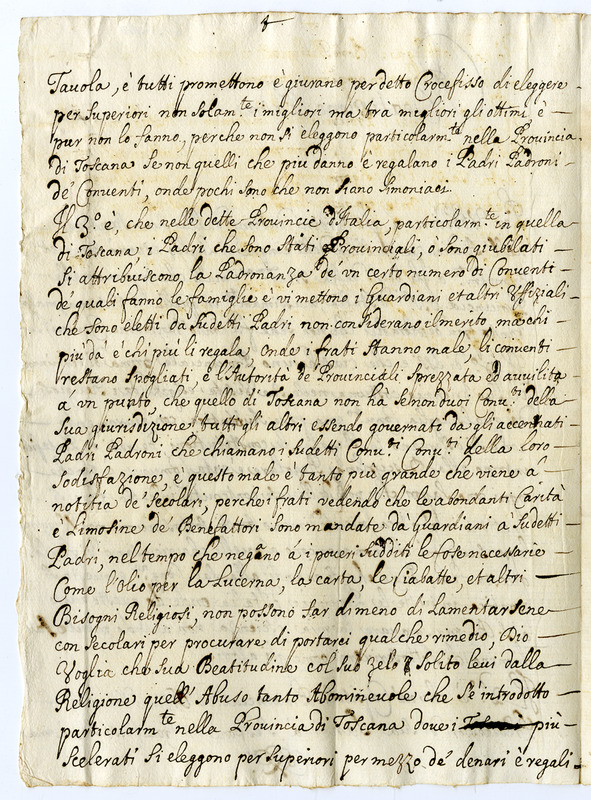 Tavola, è tutti promettono è giurano per detto Crocefisso di eleggere
per Superiori non solam.te i migliori ma trà migliori gli ottimi, è
pur non lo fanno, perche non si eleggono particolarm.te nella Provincia
di Toscana se non quelli che più danno è regalano i Padri Padroni
de' Conventi, onde pochi sono che non siano simoniaci.
Il 3.º è, che nelle dette Provincie d'Italia, particolarm.te in quella
di Toscana, i Padri che sono stati Provinciali, ò sono giubilati
si attribuiscono la Padronanza de vn certo numero di Conventi
de quali fanno le famiglie è vi mettono i Guardiani et altri Vffiziali
che sono eletti da sudetti Padri non considerano il merito, ma chi
più dà è chi più li regala onde i frati stanno male, li conventi
restano spogliati, e l'Autorità de' Provinciali sprezzata ed auuilita
à vn punto, che quello di Toscana non hà se non duoi Conv.ti della
sua giurisdizione tutti gli altri essendo governati da gli accennati
Padri Padroni che chiamano i sudetti Conv.ti Conv.ti della loro
sodisfazione, e questo male è tanto più grande che viene à
notitia de' secolari, perche i frati vedendo che le abondanti Carità
e Limosine de' Benefattori sono mandate dà Guardiani à sudetti
Padri, nel tempo che negano à i poueri sudditi le cose necessarie
Come l'Olio per la Lucerna, la carta, le Ciabatte, et altri
Bisogni Religiosi, non possono far di meno di Lamentarsene
con secolari per procurare di portarci qualche rimedio, Dio
Voglia che sua Beatitudine col suo zelo solito levi dalla
Religione quell' Abuso tanto Abominevole che s'è introdotto
particolarm.te nella Provincia di Toscana dove i più
scelerati si eleggono per superiori per mezzo de' denari è regali